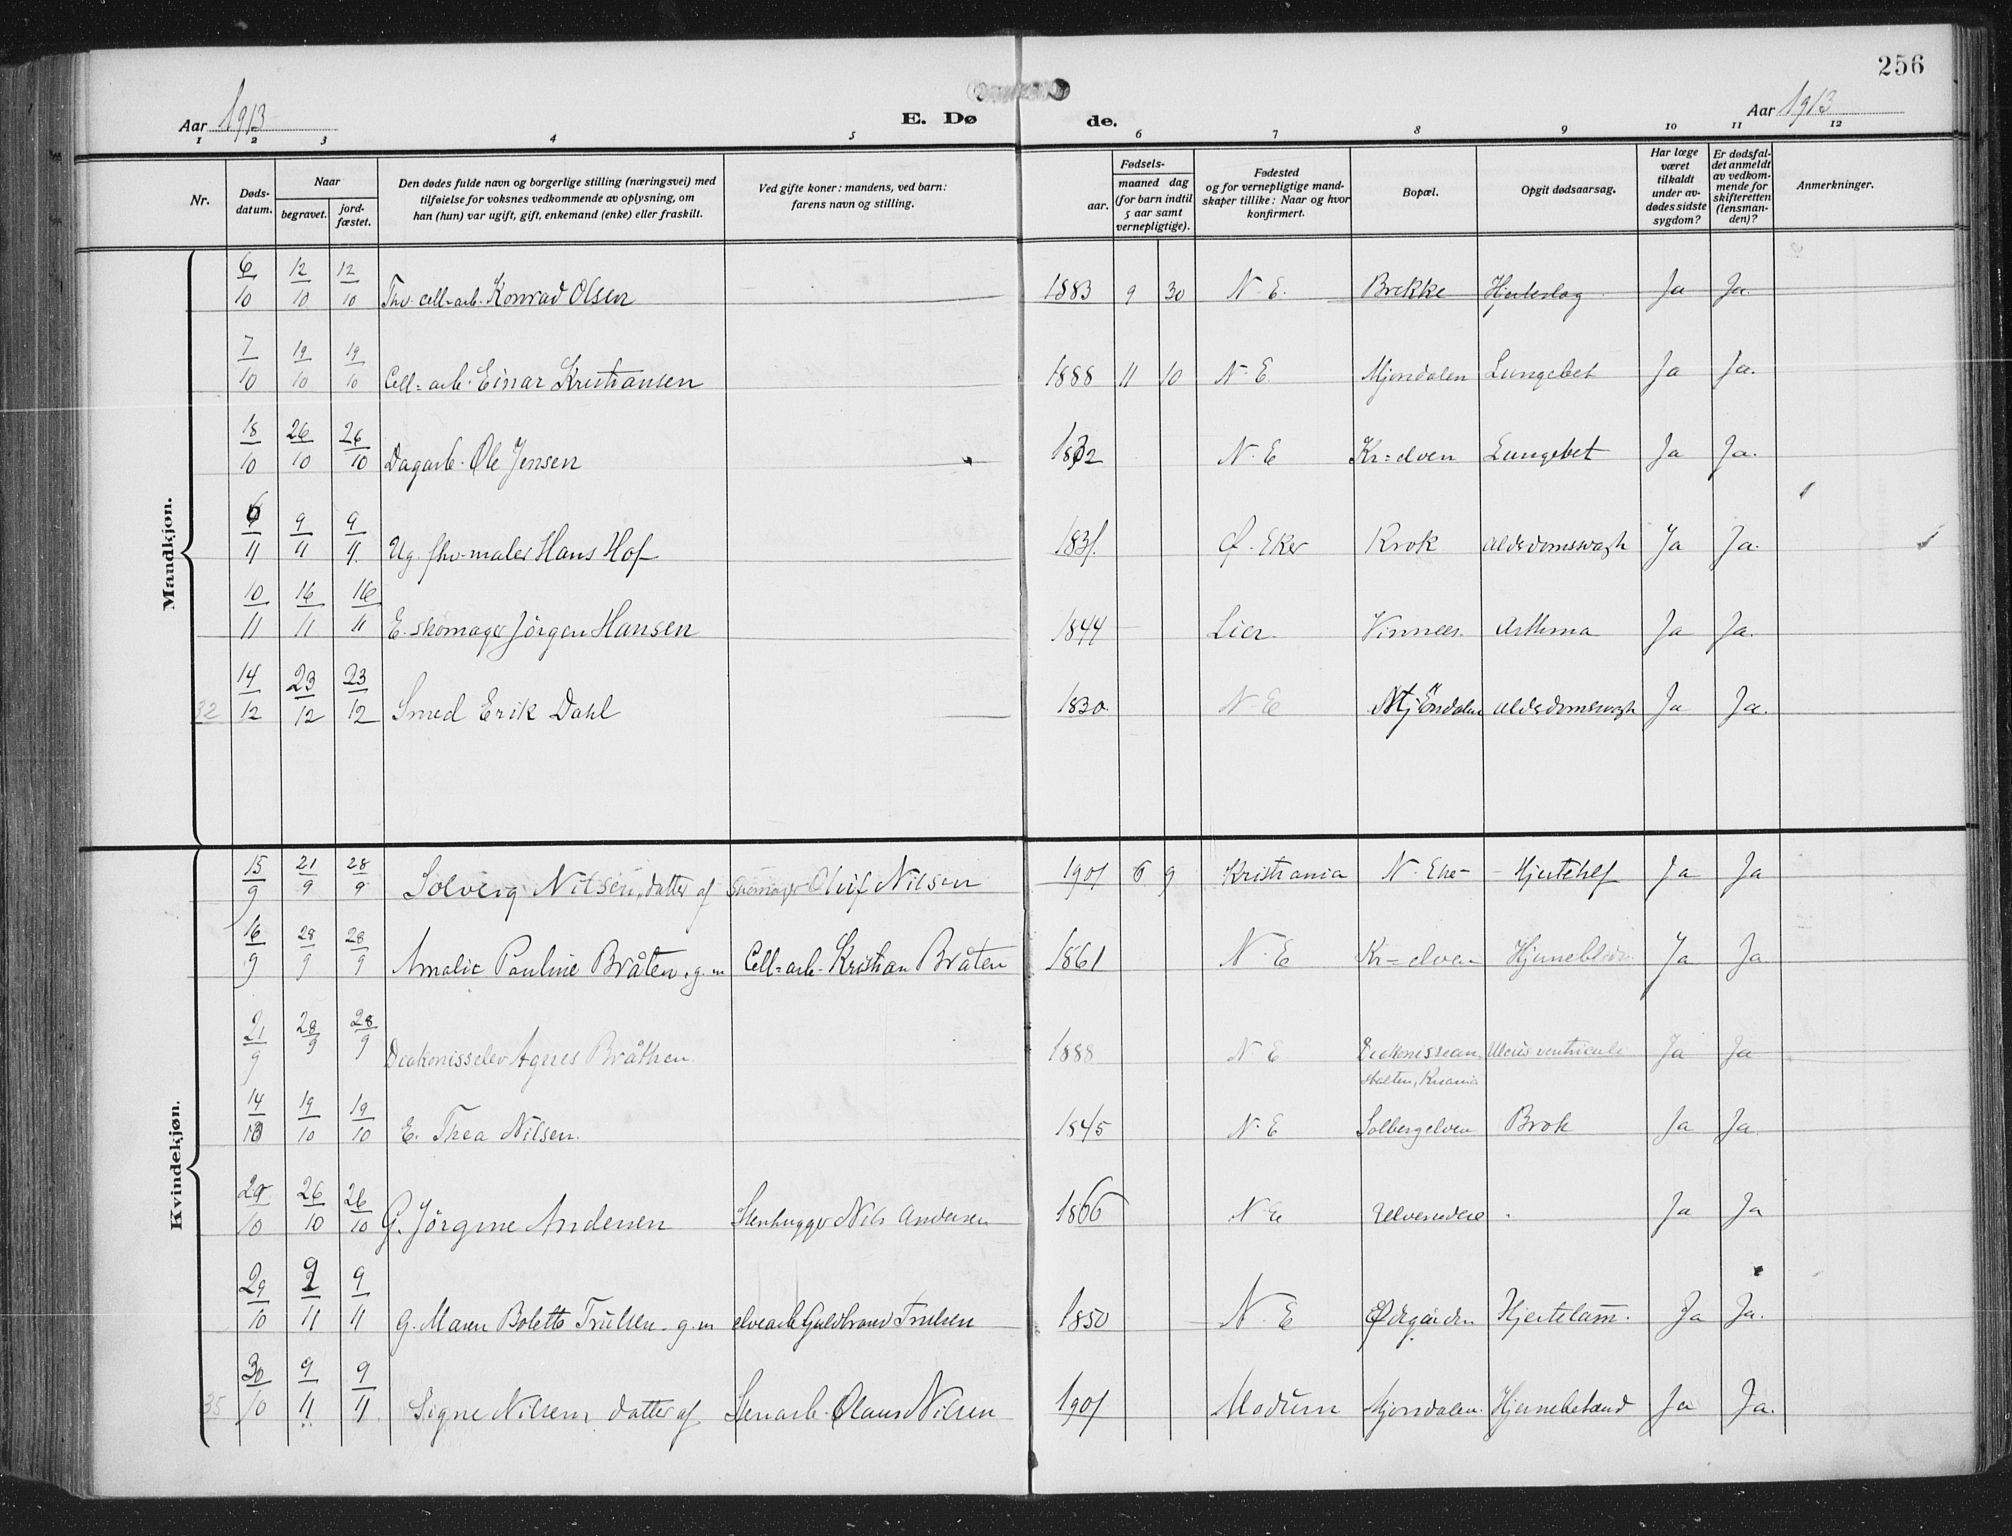 256
Aar 1913
E. Dø
de.
Aar 1913
1 2 3 4 5 6 7 8 9 10 11 12
Nr.
Døds-
datum.
Naar
begravet.
jord-
fæstet.
Den dødes fulde navn og borgerlige stilling (næringsvei) med
tilføielse for voksnes vedkommende av oplysning, om
han (hun) var ugift, gift, enkemand (enke) eller fraskilt.
Ved gifte koner: mandens, ved barn:
farens navn og stilling.
Fødsels-
aar.
maaned dag
(for barn indtil
5 aar samt
vernepligtige).
Fødested
og for vernepligtige mand-
skaper tillike: Naar og hvor
konfirmert.
Bopæl.
Opgit dødsaarsag.
Har læge
været
tilkaldt
under av-
dødes sidste
sygdom?
Er dødsfal-
det anmeldt
av vedkom-
mende for
skifteretten
(lensman-
den)?
Anmerkninger.
Mandkjøn.
6/10 12/10 12/10 Fhv. cell-arb. Konrad Olsen 1883 9 30 N-E. Brekke Hjerteslag Ja Ja
7/10 19/10 19/10 Cell-arb. Einar Kristiansen 1888 11 10 N-E Mjøndalen Lungebet Ja Ja.
18/10 26/10 26/10 Dagarb. Ole Jensen N-E Kr=elven Lungebet Ja Ja.
6/11 9/11 9/11 Ug. fhv. maler Hans Hof 1831. Ø. Eker Krok Alderdomssvagh Ja Ja.
10/11 16/11 16/11 E. skomager Jörgen Hansen 1844 Lier. Vinnes. Asthma Ja Ja.
32 14/12 23/12 23/12 Smed Erik Dahl 1830. N-E Mjöndalen Alderdomssvagh Ja Ja.
Kvindekjøn.
15/9 21/9 28/9 Solveig Nilsen, datter af Skomager Oluf Nilsen 1901 6 9 Kristiania N. Eke- Hjertefeil Ja Ja
16/9 28/9 28/9 Amalie Pauline Bråten. g. m Cell=arb. Kristian Bråten 1861 N-E Kr=elven Ja Ja
21/9 28/9 28/9 Diakonisselev Agnes Bråthen. 1888 N-E Diakonissean Ulcus ventriculi Ja Ja
stalten, Krania
14/10 19/10 19/10 E. Thea Nilsen. 1845 N-E Solbergelven Brok Ja Ja
26/10 26/10 G. Jörgine Andersen Stenhugger Nils Andersen 1866 N-E Ja Ja
29/10 9/11 9/11 G. Maren Bolette Trulsen. g. m elvearb Guldbrand Trulsen 1850 N-E Ødegården Hjertelam. Ja Ja.
35 30/10 9/11 9/11 Signe Nilsen, datter af Stenarb. Olaus Nilsen 1901 Modum Mjøndalen. Hjernebetænd Ja Ja.